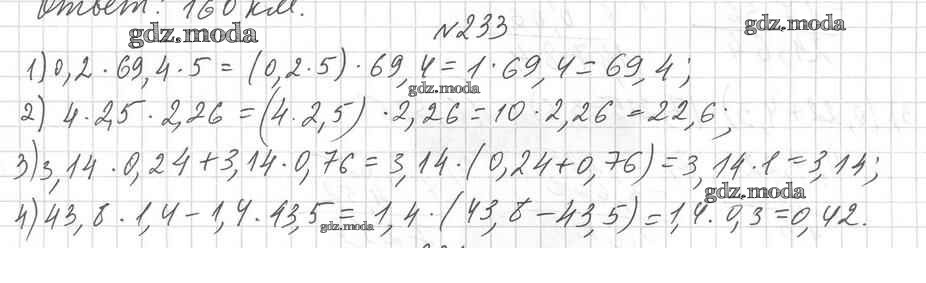 Ответ: 160 км.
gdz.moda
gdz.moda
№233
1) 0,2 · 69,4 · 5 = (0,2 · 5) · 69,4 = 1 · 69,4 = 69,4;
gdz.moda
2) 4 · 2,5 · 2,26 = (4 · 2,5) · 2,26 = 10 · 2,26 = 22,6;
3) 3,14 · 0,24 + 3,14 · 0,76 = 3,14 · (0,24 + 0,76) = 3,14 · 1 = 3,14;
gdz.moda
4) 43,8 · 1,4 - 1,4 · 43,5 = 1,4 · (43,8 - 43,5) = 1,4 · 0,3 = 0,42.
gdz.moda